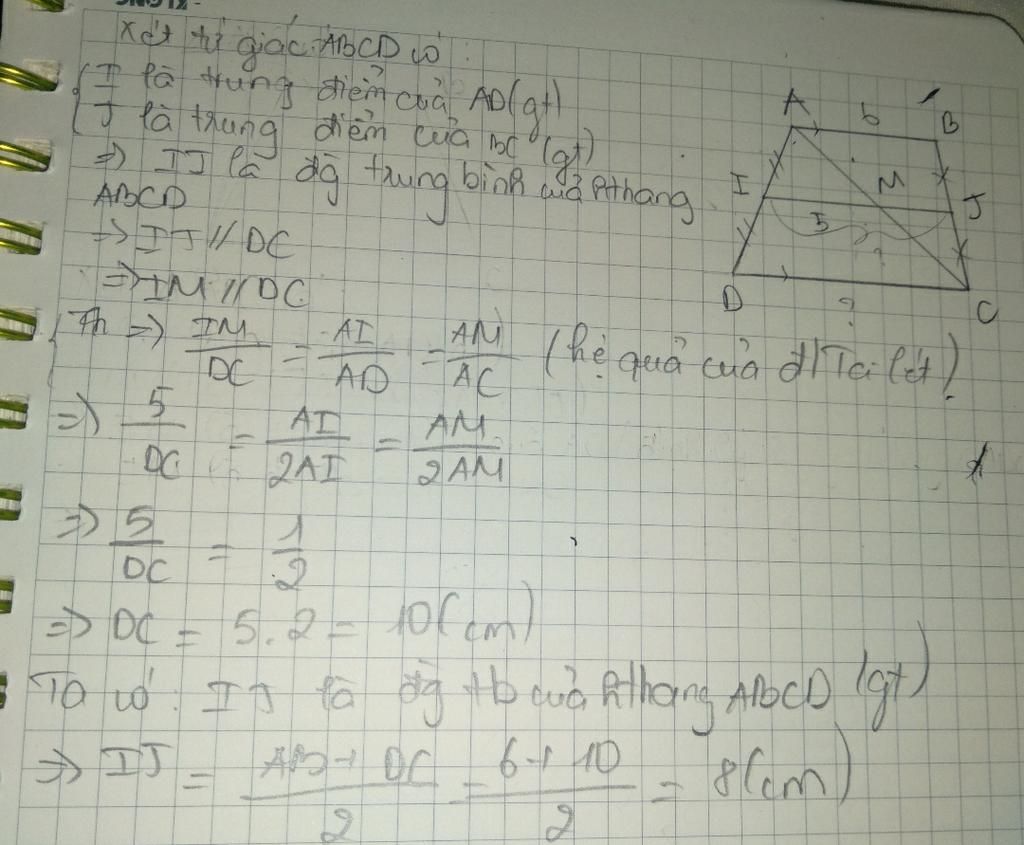 Xét tứ giác ABCD có:
I là trung điểm của AD (gt)
J là trung điểm của BC (gt)
=> IJ là đg trung bình của hthang
ABCD
=> IJ // DC
=> IM // DC
=> IM/DC = AI/AD = AM/AC (hệ quả của đl Ta lét)
=> 5/DC = AI/2AI = AM/2AM
=> 5/DC = 1/2
=> DC = 5.2 = 10(cm)
Ta có: IJ là đg tb của hthang ABCD (gt)
=> IJ = AB + DC/2 = 6 + 10/2 = 8(cm)
A 6 B
I M J
5 ?
D ? C